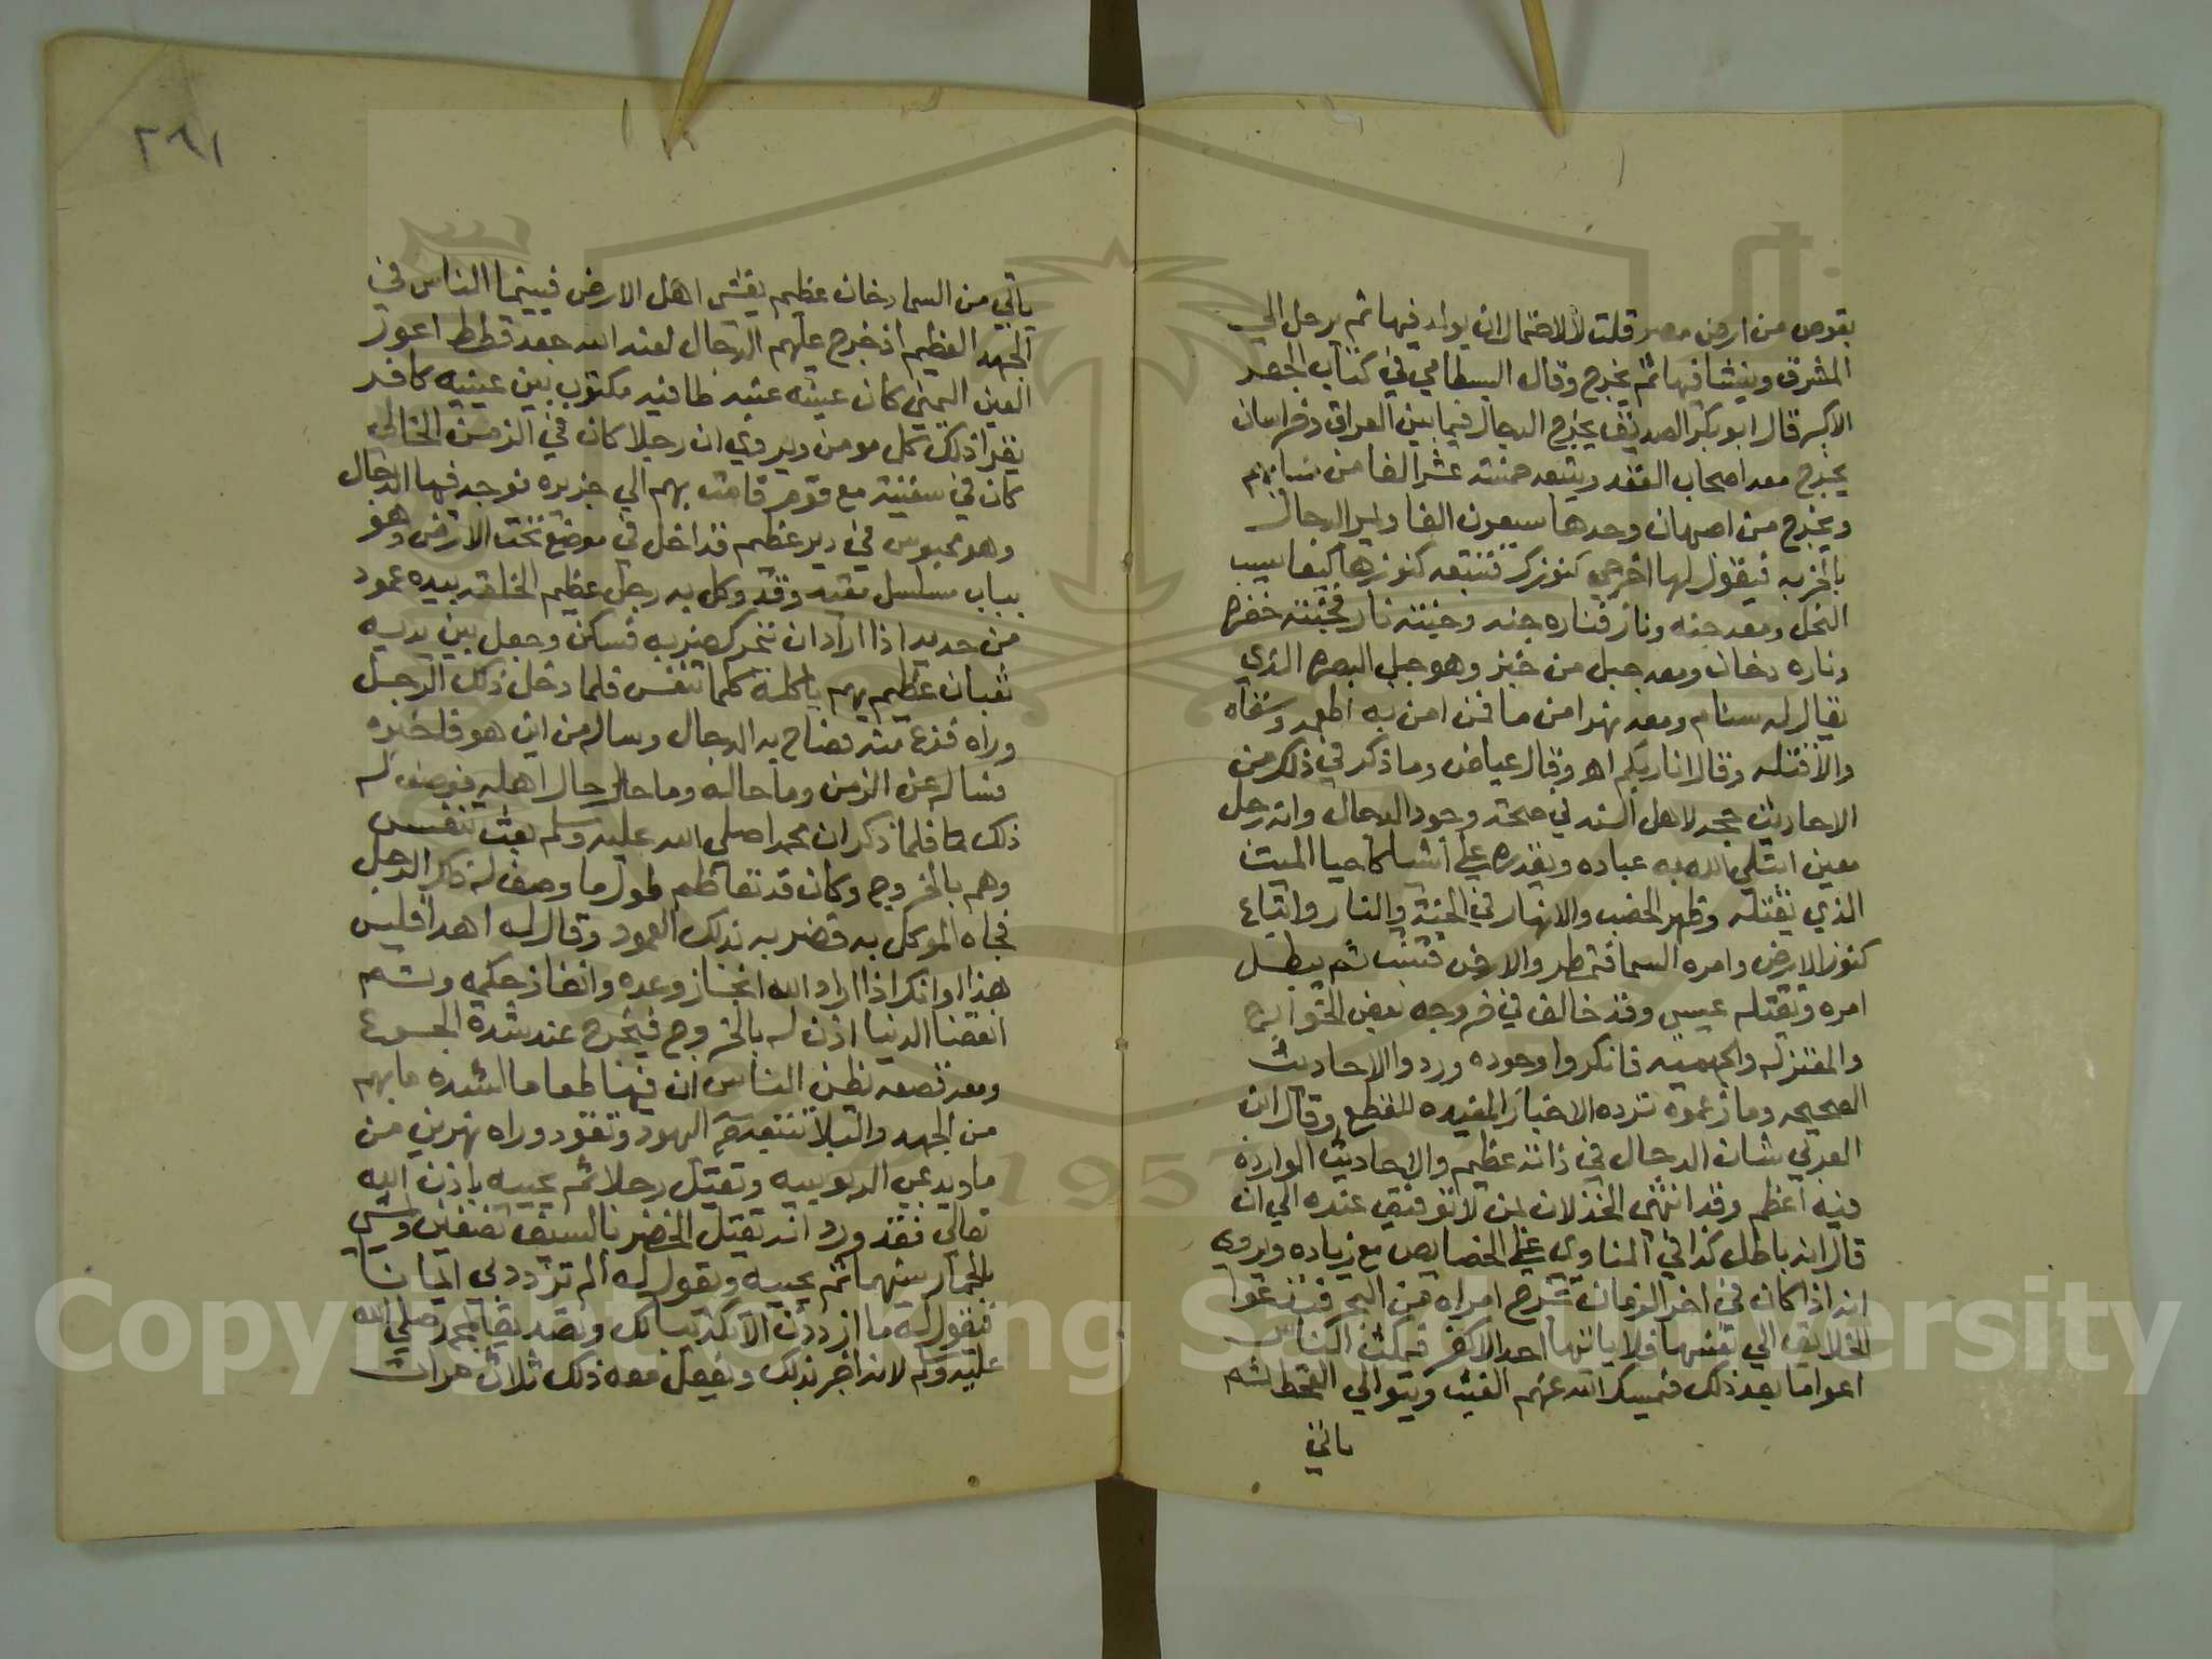 بقوص من ارض مصر قلت لاحتمال ان يولد فيها ثم يرحل الي
المشرق وينشا فيها ثم يخرج وقال البسطامي في كتاب الجفر
الاكبر قال ابو بكر الصديق يخرج الدجال فيما بين العراق وخراسان
يخرج معه اصحاب العقد ويتبعه خمسة عشر الفا من نسايهم
ويخرج من اصبهان وحدها سبعون الفا ويمر الدجال
بالخربه فيقول لها اخرجي كنوزك فتتبعه كنوزها كيعاسيب
النحل ومعه جنه ونار فناره جنه وجنته نار فجنته خضره
وناره دخان ومعه جبل من خبز وهو جبل البصره الذي
يقال له سنام ومعه نهرا من ما فمن امن به اطعمه وسقاه
والا قتله وقال انا ربكم اهـ وقال عياض وما ذكر في ذلك من
الاحاديث حجه لاهل السنه في صحة وجود الدجال وانه رجل
معين ابتلي الله به عباده ويقدره علي اشيا كاحيا الميت
الذي يقتله وظهر الخصب والانهار في الجنة والنار واتباع
كنوز الارض وامره السما فتمطر والارض فتنبت ثم يبطل
امره ويقتله عيسي وقد خالف في خروجه بعض الخوارج
والمعتزله والجهميه فانكروا وجوده وردوا الاحاديث
الصحيحه وما زعموه ترده الاخبار المفيده للقطع وقال ابن
العربي شان الدجال في ذاته عظيم والاحاديث الوارده
فيه اعظم وقد انتهي الخذلان لمن لا توفيق عنده الي ان
قال انه باطل كذا في المناوي علي الخصايص مع زياده ويروي
انه اذا كان في اخر الزمان تخرج امراه من البحر فتدعوا
الخلايق الي نفسها فلا ياتيها احد الا كفر فيمكث الناس
اعواما بعد ذلك فيمسك الله عنهم الغيث ويتوالي القحط ثم
ياتي
٢٩١
ياتي من السما دخان عظيم يغشي اهل الارض فبينما الناس في
الجهد العظيم اذ خرج عليهم الدجال لعنه الله جعد قطط اعور
العين اليمني كان عينه عنبه طافيه مكتوب بين عينيه كافر
يقرا ذلك كل مومن ويروي ان رجلا كان في الزمن الخالي
كان في سفينة مع قوم قامت بهم الي جزيره فوجد فيها الدجال
وهو محبوس في دير عظيم قد اخل في موضع تحت الارض وهو
بباب مسلسل مقيد وقد وكل به رجل عظيم الخلقه بيده عمود
من حديد اذا اراد ان يتحرك ضربه فسكن وجعل بين يديه
ثعبان عظيم يهم باكله كلما تنفس فلما دخل ذلك الرجل
وراه فزع منه فصاح به الدجال وساله من اين هو فاخبره
فساله عن الزمن وما حاله وما حال رجال اهله فوصف له
ذلك كما فلما ذكر ان محمدا صلي الله عليه وسلم بعث تنفس
وهم بالخروج وكان قد تعاظم طول ما وصف له ذلك الرجل
فجاه الموكل به فضربه بذلك العمود وقال له اهدا فليس
هذا اوانك اذا اراد الله انجاز وعده وانفاذ حكمه وتم
انقضا الدنيا اذن له بالخروج فيخرج عند شدة الجوع
ومعه قصعه يظن الناس ان فيها طعاما لشده ما بهم
من الجهد والبلا تتبعه اليهود وتقود وراه نهرين من
ما ويدعي الربوبيه ويقتل رجلا ثم يحييه باذن الله
تعالي فقد ورد انه يقتل الخضر بالسيف نصفين ويمشي
بالحمار بينهما ثم يحييه ويقول له الم تزدد بي ايمانا
فيقول له ما ازددت الا تكذيبا لك وتصديقا لمحمد صلي الله
عليه وسلم لانه اخبر بذلك ويفعل معه ذلك ثلاث مرات
Copyright © King Saud University
1957